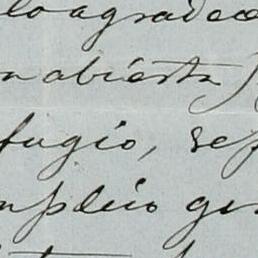 lo agradece
n abierta
fugio, ref
mpleio ge